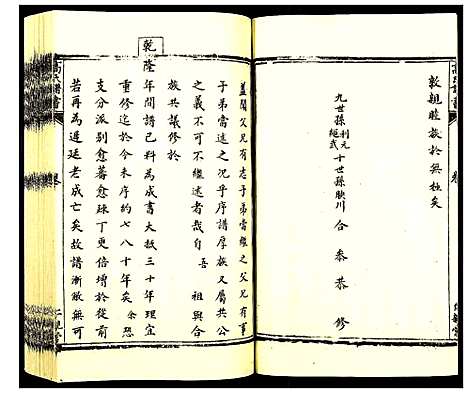 敦親睦族於無極矣
九世孫 利元 繩武 十世孫 映川 合 泰 恭 修
蓋聞父兄有志子弟當繼之父兄有事
子弟當述之況乎序譜厚族又屬共公
之義不可不繼述者哉自吾 祖與合
族共議修於
乾隆年間譜已料為成書大抵三十年理宜
重修迄於今未序約七八十年矣余恐
支分派別愈蕃愈踈丁更倍增於從前
若再為遲延老成亡矣故譜漸散無可